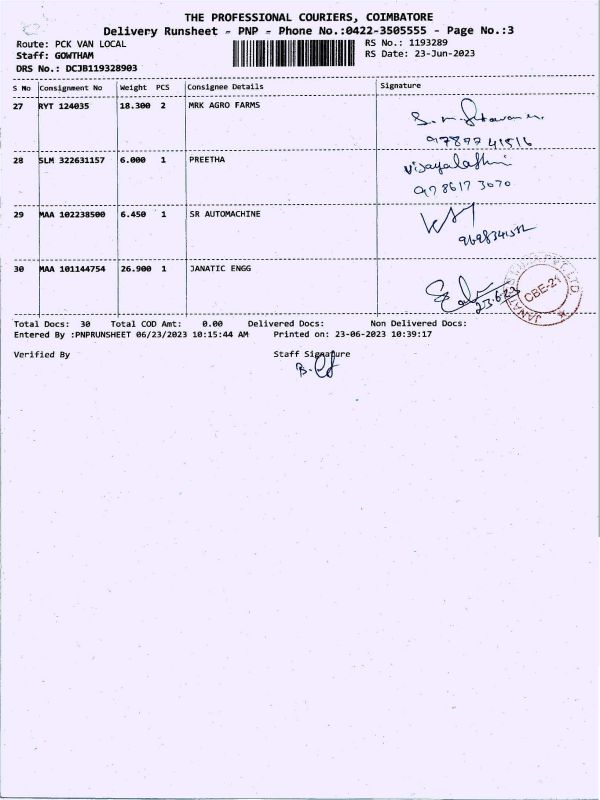 THE PROFESSIONAL COURIERS, COIMBATORE
Delivery Runsheet - PNP - Phone No.:0422-3505555 - Page No.:3
Route: PCK VAN LOCAL
RS No.: 1193289
Staff: GOWTHAM
RS Date: 23-Jun-2023
DRS No.: DCJB119328903
S No Consignment No Weight PCS Consignee Details Signature
27 RYT 124035 18.300 2 MRK AGRO FARMS
28 SLM 322631157 6.000 1 PREETHA
Vijayalakshmi
97 8617 3070
29 MAA 102238500 6.450 1 SR AUTOMACHINE
30 MAA 101144754 26.900 1 JANATIC ENGG
23.6.23
CBE-21
Total Docs: 30 Total COD Amt: 0.00 Delivered Docs: Non Delivered Docs:
Entered By :PNPRUNSHEET 06/23/2023 10:15:44 AM Printed on: 23-06-2023 10:39:17
Verified By Staff Signature